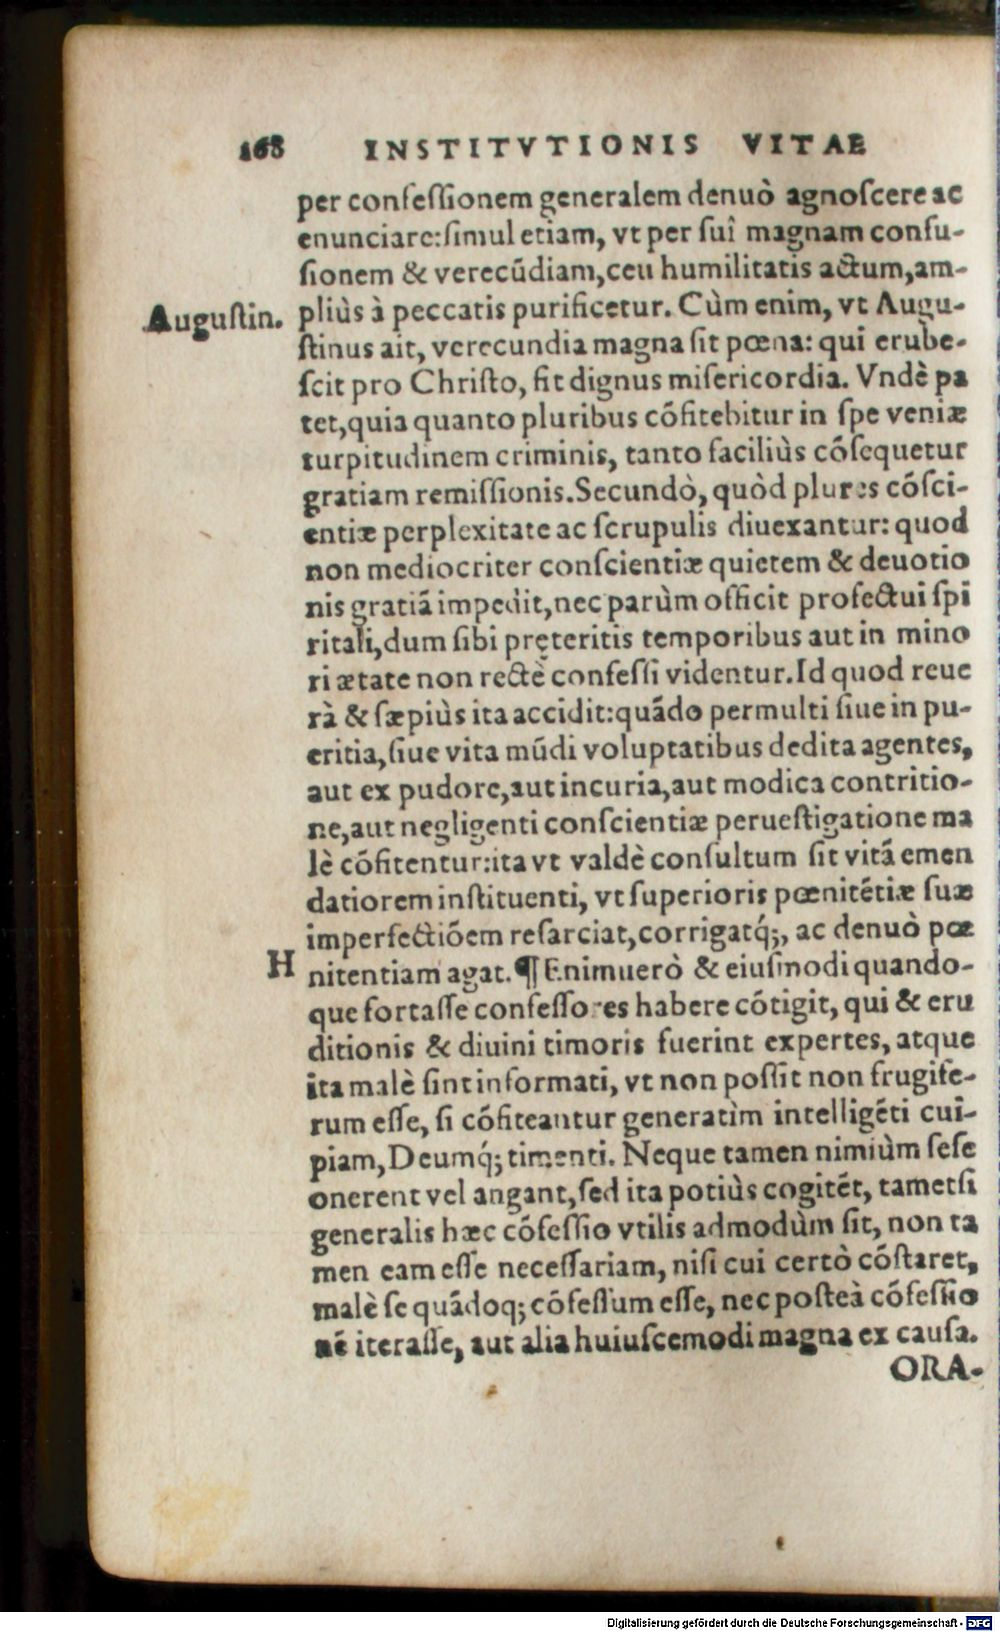 168 INSTITVTIONIS VITAE
per confeſſionem generalem denuò agnoſcere ac
enunciare:ſimul etiam, vt per ſuî magnam confu-
ſionem & verecūdiam,ceu humilitatis actum,am-
Auguſtin. pliùs à peccatis purificetur. Cùm enim, vt Augu-
ſtinus ait, verecundia magna ſit pœna: qui erube-
ſcit pro Chriſto, fit dignus miſericordia. Vndè pa
tet,quia quanto pluribus cōfitebitur in ſpe veniæ
turpitudinem criminis, tanto faciliùs cōſequetur
gratiam remiſſionis.Secundò, quòd plures cōſci-
entiæ perplexitate ac ſcrupulis diuexantur: quod
non mediocriter conſcientiæ quietem & deuotio
nis gratiā impedit,nec parùm officit profectui ſpi
ritali,dum ſibi pręteritis temporibus aut in mino
ri ætate non rectè confeſſi videntur.Id quod reue
rà & ſæpiùs ita accidit:quādo permulti ſiue in pu-
eritia,ſiue vita mūdi voluptatibus dedita agentes,
aut ex pudore,aut incuria,aut modica contritio-
ne,aut negligenti conſcientiæ perueſtigatione ma
lè cōfitentur:ita vt valdè conſultum ſit vitā emen
datiorem inſtituenti, vt ſuperioris pœnitētiæ ſuæ
imperfectiōem reſarciat,corrigatq́;, ac denuò pœ
H nitentiam agat.¶Enimuerò & eiuſmodi quando-
que fortaſſe confeſſores habere cōtigit, qui & eru
ditionis & diuini timoris fuerint expertes, atque
ita malè ſint informati, vt non poſſit non frugife-
rum eſſe, ſi cōfiteantur generatìm intelligēti cui-
piam,Deumq́; timenti. Neque tamen nimiùm ſeſe
onerent vel angant,ſed ita potiùs cogitēt, tametſi
generalis hæc cōfeſſio vtilis admodùm ſit, non ta
men eam eſſe neceſſariam, niſi cui certò cōſtaret,
malè ſe quādoq; cōfeſſum eſſe, nec poſteà cōfeſſio
nē iteraſſe, aut alia huiuſcemodi magna ex cauſa.
ORA-
Digitalisierung gefördert durch die Deutsche Forschungsgemeinschaft - DFG